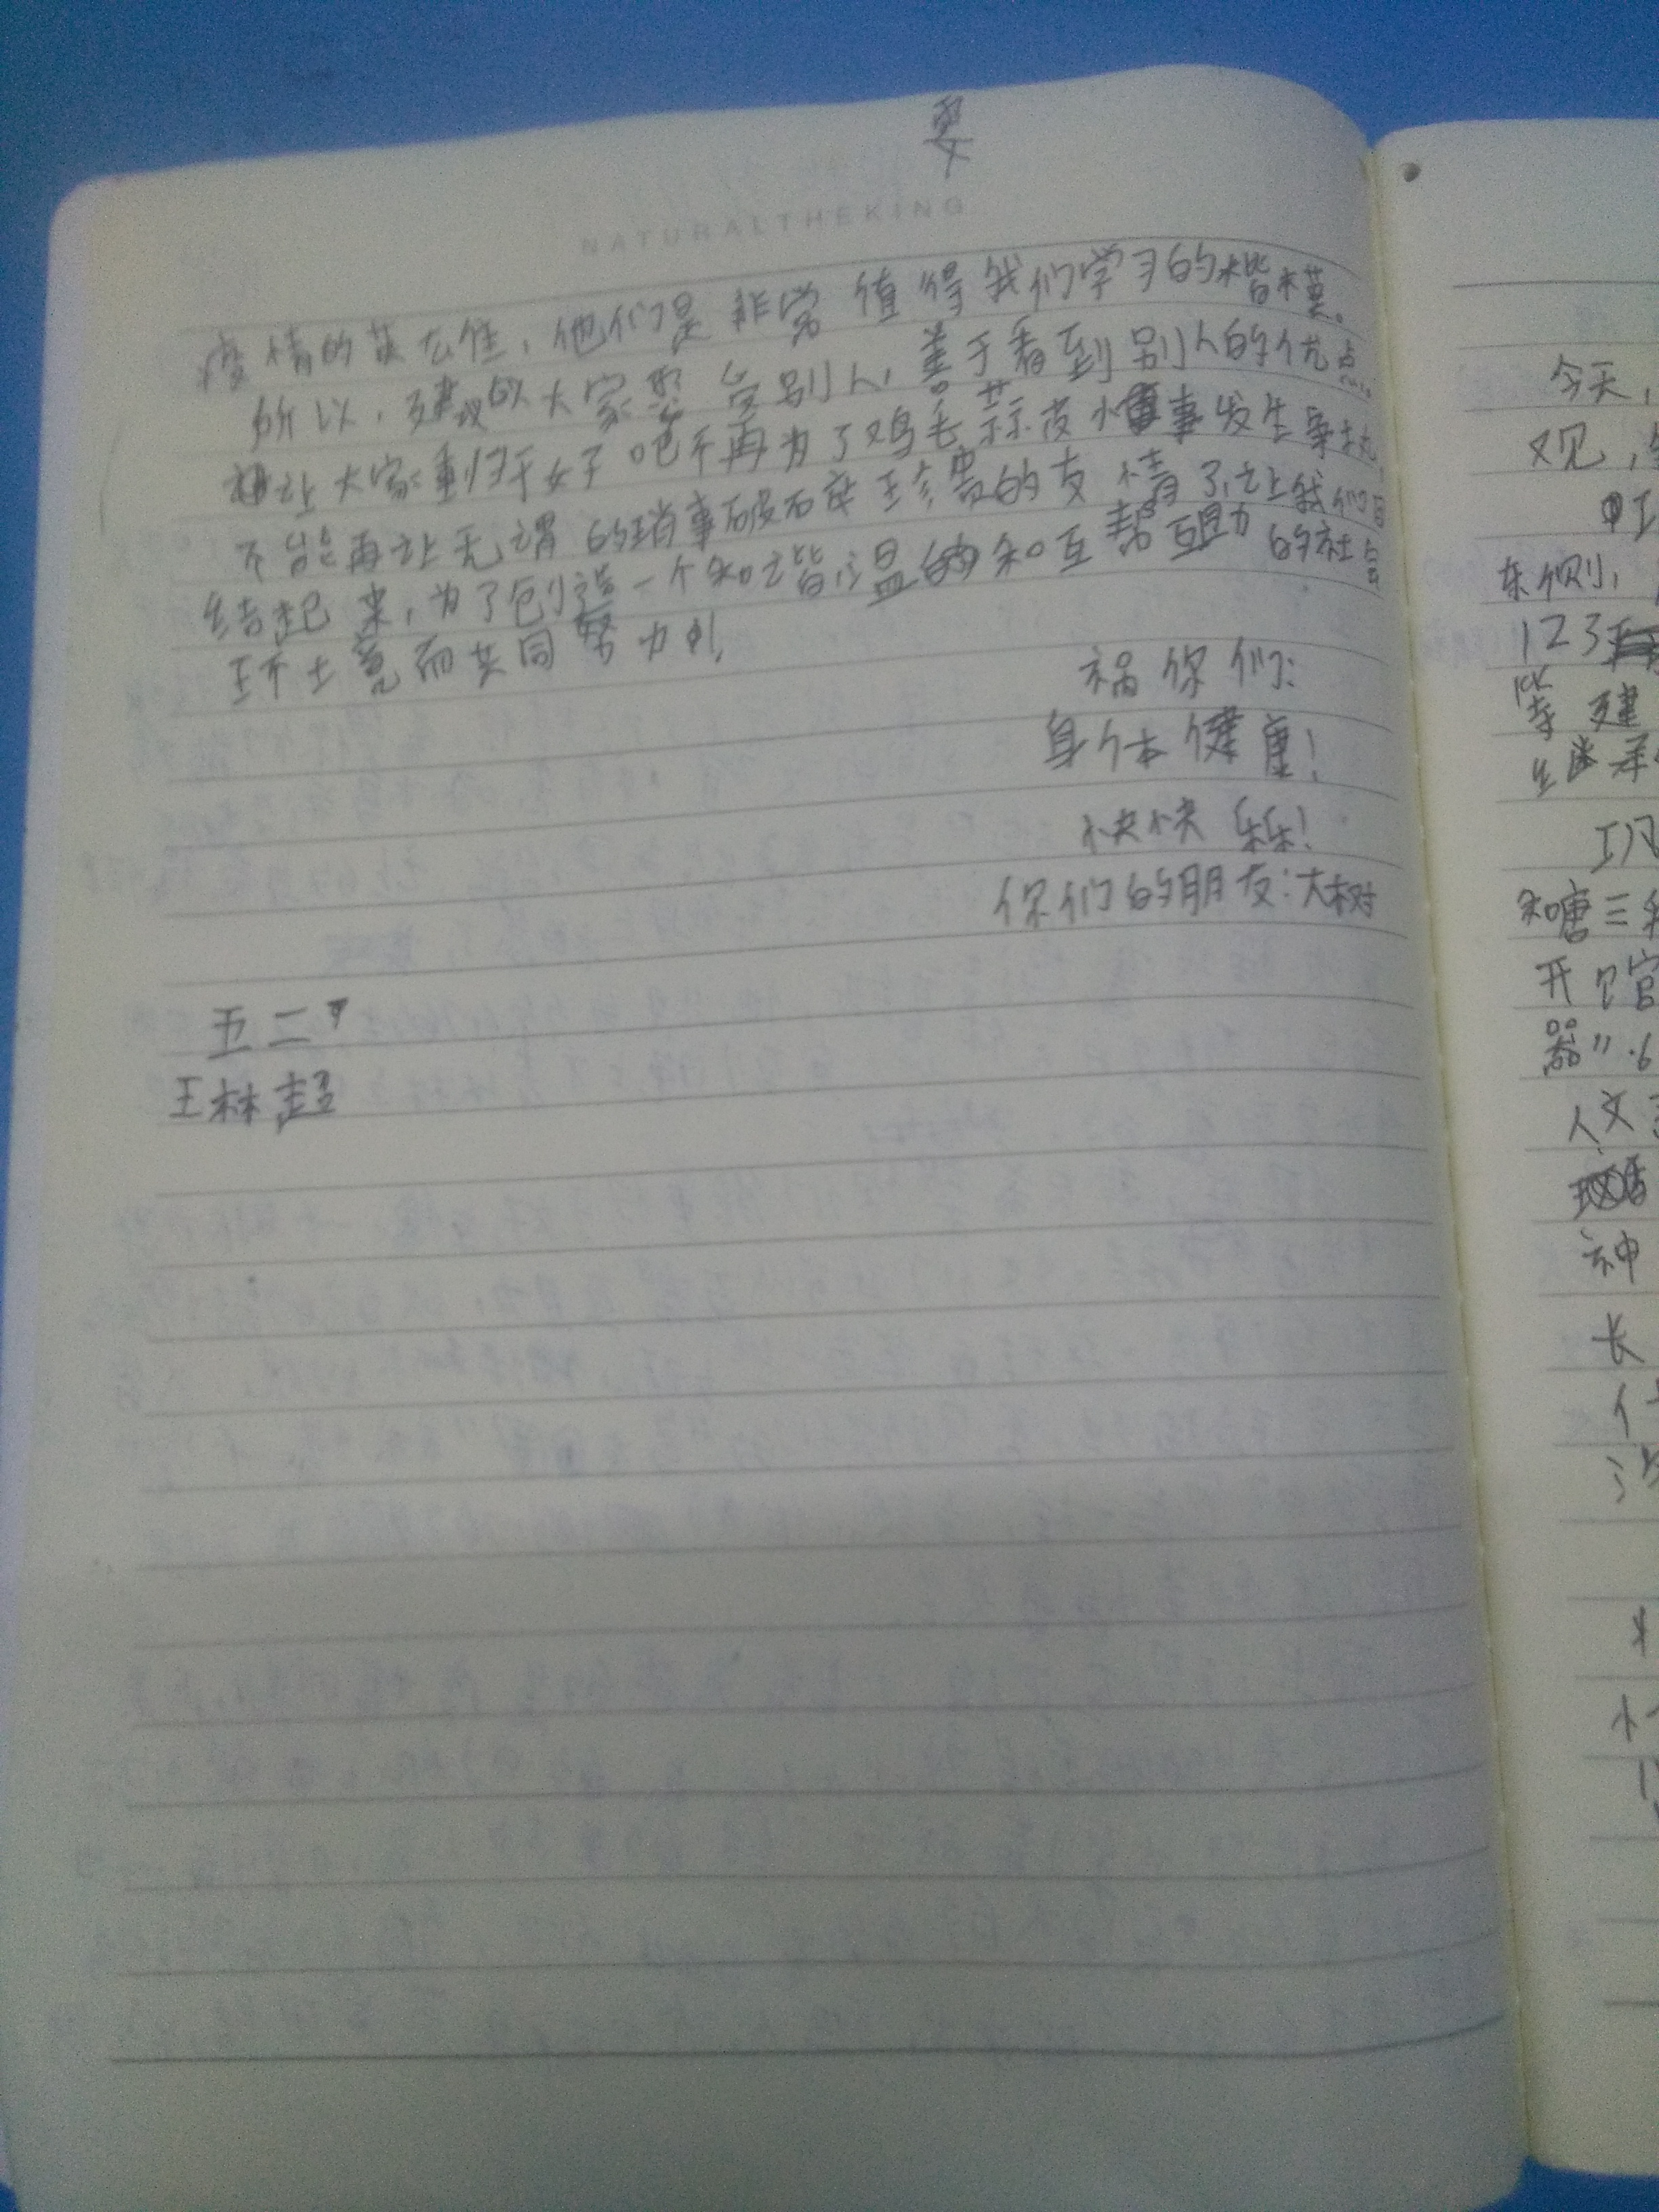 要
NATURALTHEKING
疫情的英雄, 他们是非常值得我们学习的楷模。
所以, 建议大家要 别人, 善于看到别人的优点,
让大家重归于好吧不再为了鸡毛蒜皮小事发生争执,
不能再让无谓的琐事破碎珍贵的友情了,让我们团
结起来, 为了创造一个和谐温 和互帮互助的社会
环境而共同努力!
祝你们:
身体健康!
快快乐乐!
你们的朋友:大树
五二
王林超
今天,
观,
东侧,
123
寺建
生
和唐三
开
器"
人文
神
长